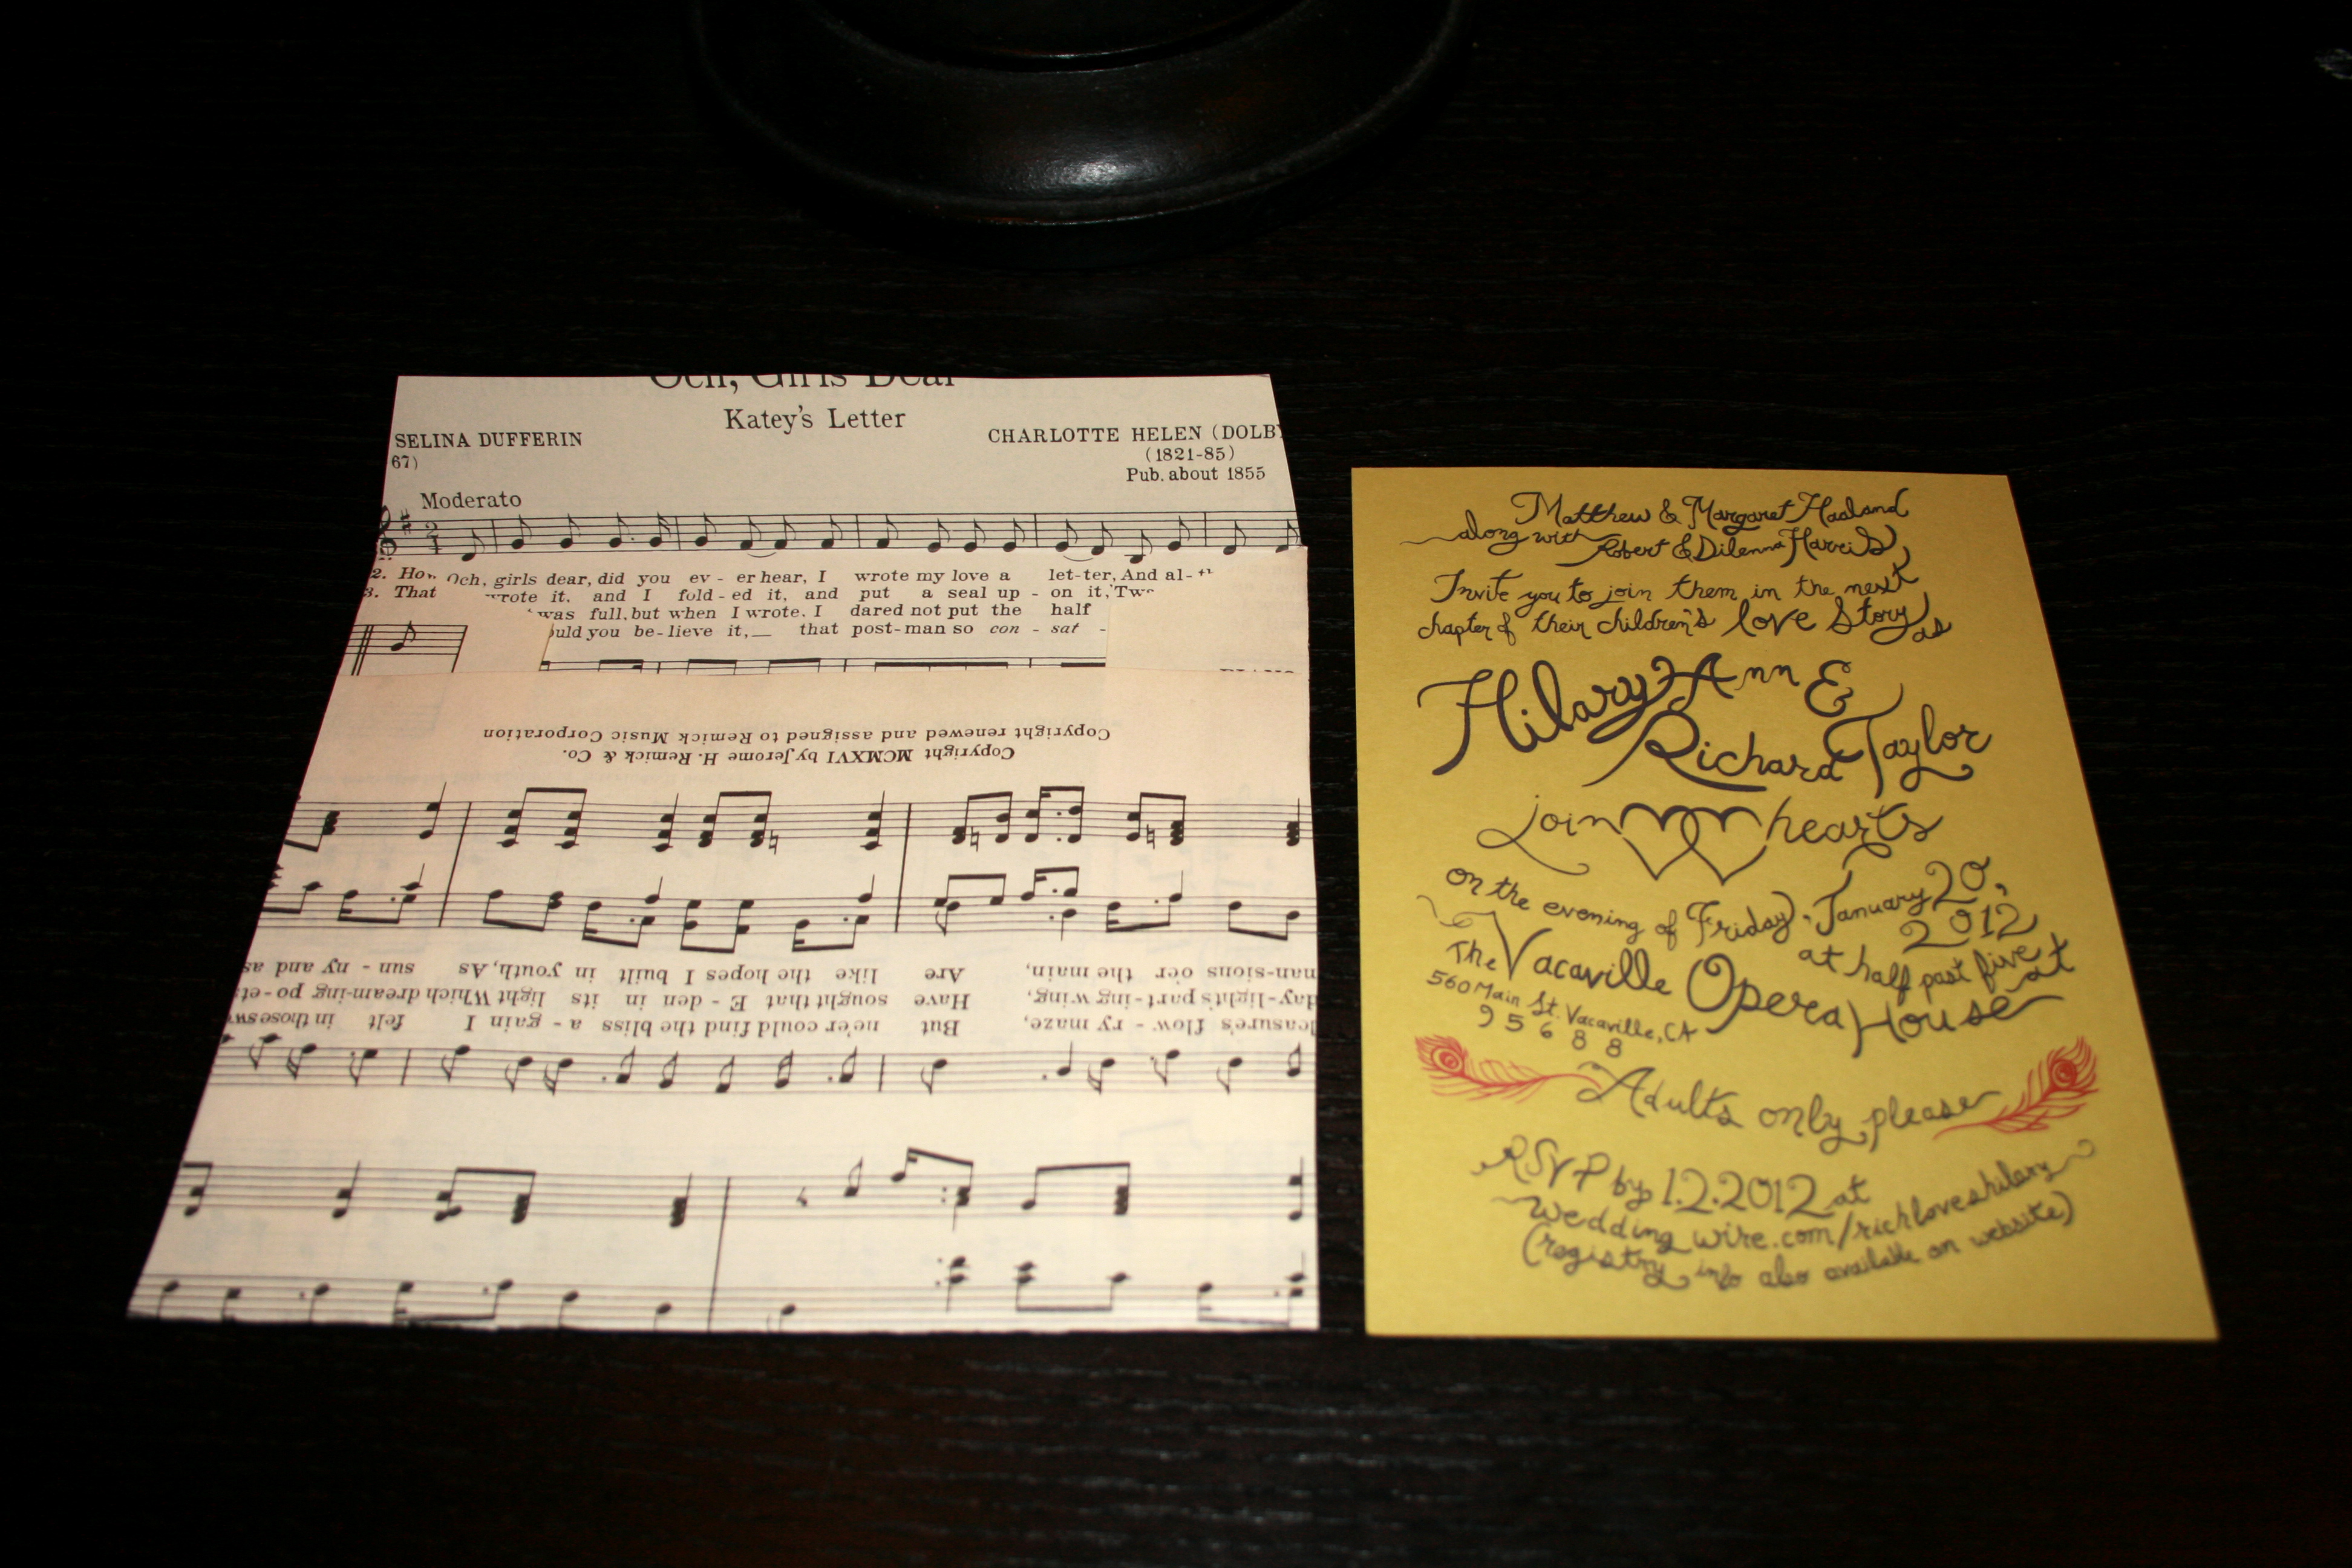 Och, Girls Dear
Katey's Letter
SELINA DUFFERIN
67)
CHARLOTTE HELEN (DOLBY
(1821-85)
Pub. about 1855
Moderato
2. How Och, girls dear, did you ev - er hear, I wrote my love a let-ter, And al-
3. That wrote it, and I fold-ed it, and put a seal up - on it, 'Tw
was full, but when I wrote, I dared not put the half
ould you be-lieve it,__ that post-man so con - sat -
Copyright renewed and assigned to Remick Music Corporation
Copyright MCMXVI by Jerome H. Remick & Co.
man-sions o'er the main, Are like the hopes I built in youth, As sun - ny and as
day-light's part-ing wing, Have sought that E - den in its light Which dream-ing po-ets
leasure's flow - ry maze, But ne'er could find the bliss a - gain I felt in those sw
Matthew & Margaret Haaland
along with Robert & Dilenna Harris
Invite you to join them in the next
chapter of their children's love story as
Hilary Ann &
Richard Taylor
join hearts
on the evening of Friday, January 20,
2012
at half past five at
The Vacaville Opera House
560 Main St. Vacaville, CA
95688
Adults only, please
RSVP by 1.2.2012 at
wedding wire.com/richloveshilary
(registry info also available on website)